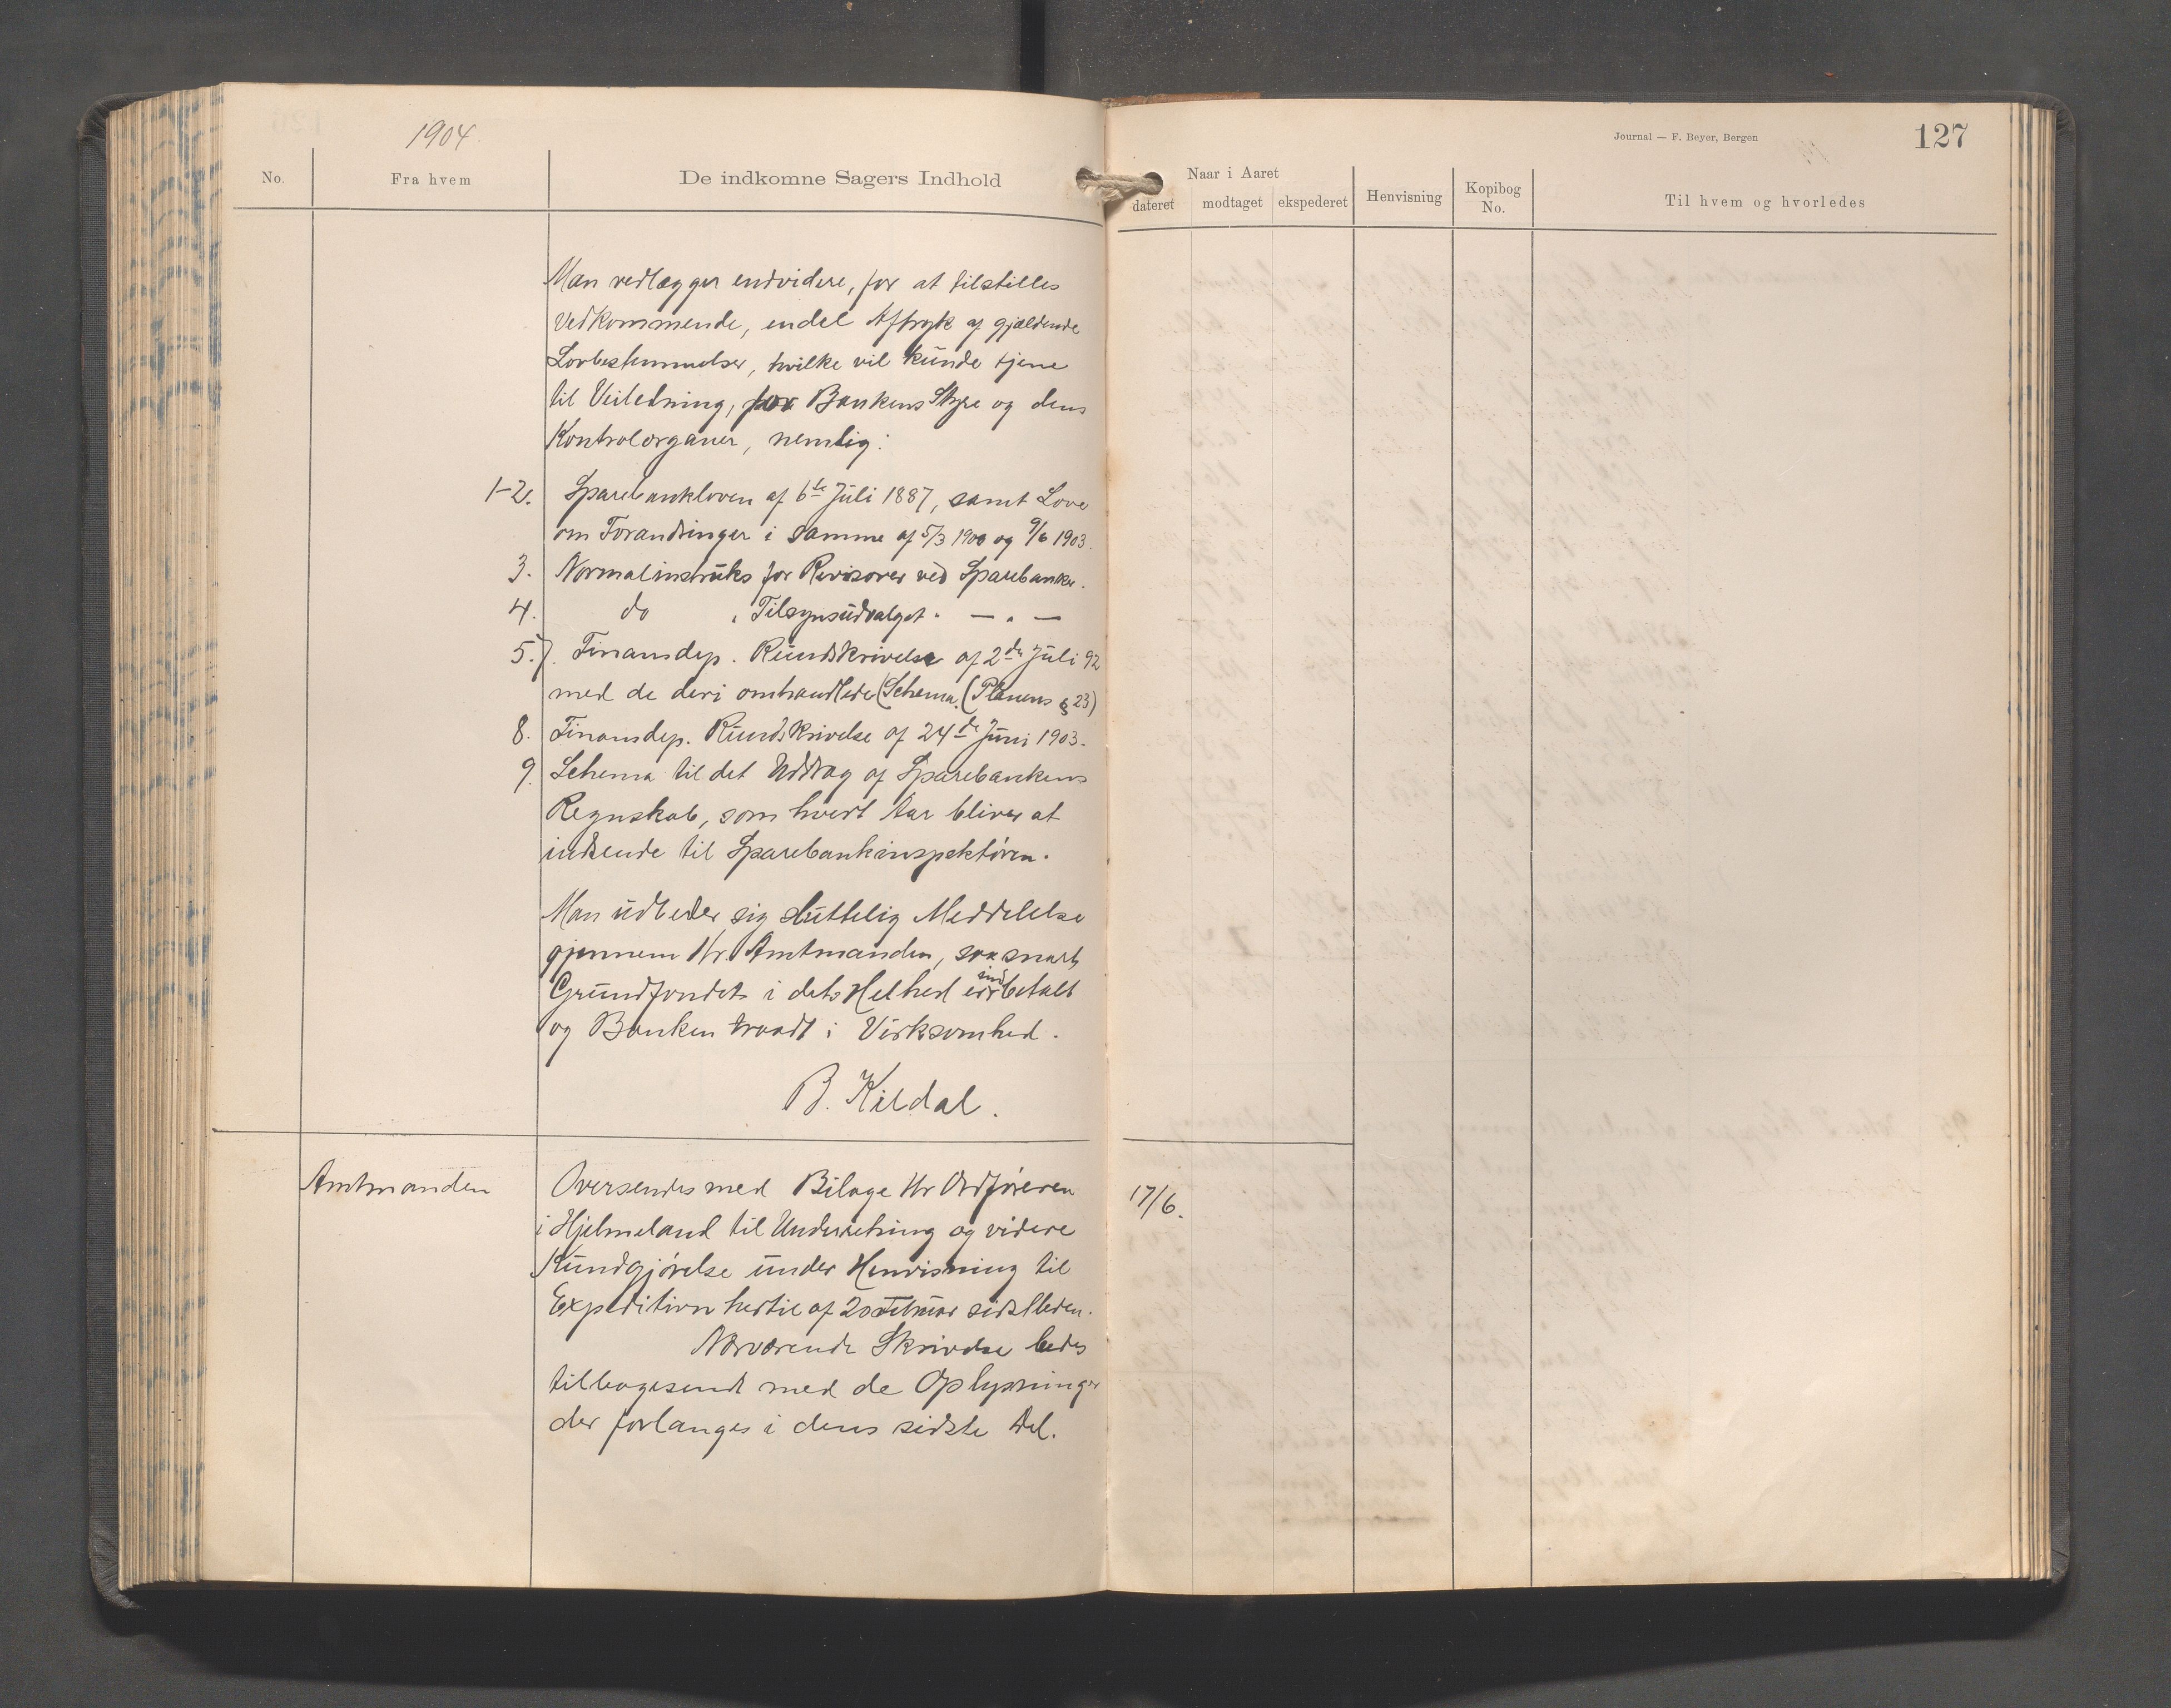 1904.
No.
Fra hvem
De indkomne Sagers Indhold
Man vedlægger endvidere, for at tilstilles
Vedkommende, endel Aftryk af gjældende
Lovbestemmelser, hvilke vil kunde tjene
til Veiledning, for Bankens Styre og dens
Kontrolorganer, nemlig:
1-2. Sparebankloven af 6te Juli 1887, samt Love
om Forandringer i samme af 5/3 1900 og 9/6 1903.
3. Normalinstruks for Revisorer ved Sparebanker.
4. do „ Tilsynsudvalget " — " —
5.7. Finansdep. Rundskrivelse af 2den Juli 92
med de deri omhandlede Schema. (Planens § 23)
8. Finansdep. Rundskrivelse af 24de Juni 1903.
9. Schema til det Uddrag af Sparebankens
Regnskab, som hvert Aar bliver at
indsende til Sparebankinspektøren.
Man udbeder sig sluttelig Meddelelse
gjennem Hr. Amtmanden, saasnart
Grundfondet i dets Helhed er indbetalt
og Banken traadt i Virksomhed.
B. Kildal.
Amtmanden
Oversendes med Bilage Hr Ordføreren
i Hjelmeland til Underretning og videre
Kundgjørelse under Henvisning til
Expedition hertil af 20 Februar sidstleden.
Nærværende Skrivelse bedes
tilbagesendt med de Oplysninger
der forlanges i dens sidste Del.
Journal — F. Beyer, Bergen
127
Naar i Aaret
dateret
modtaget
ekspederet
Henvisning
Kopibog
No.
Til hvem og hvorledes
17/6.